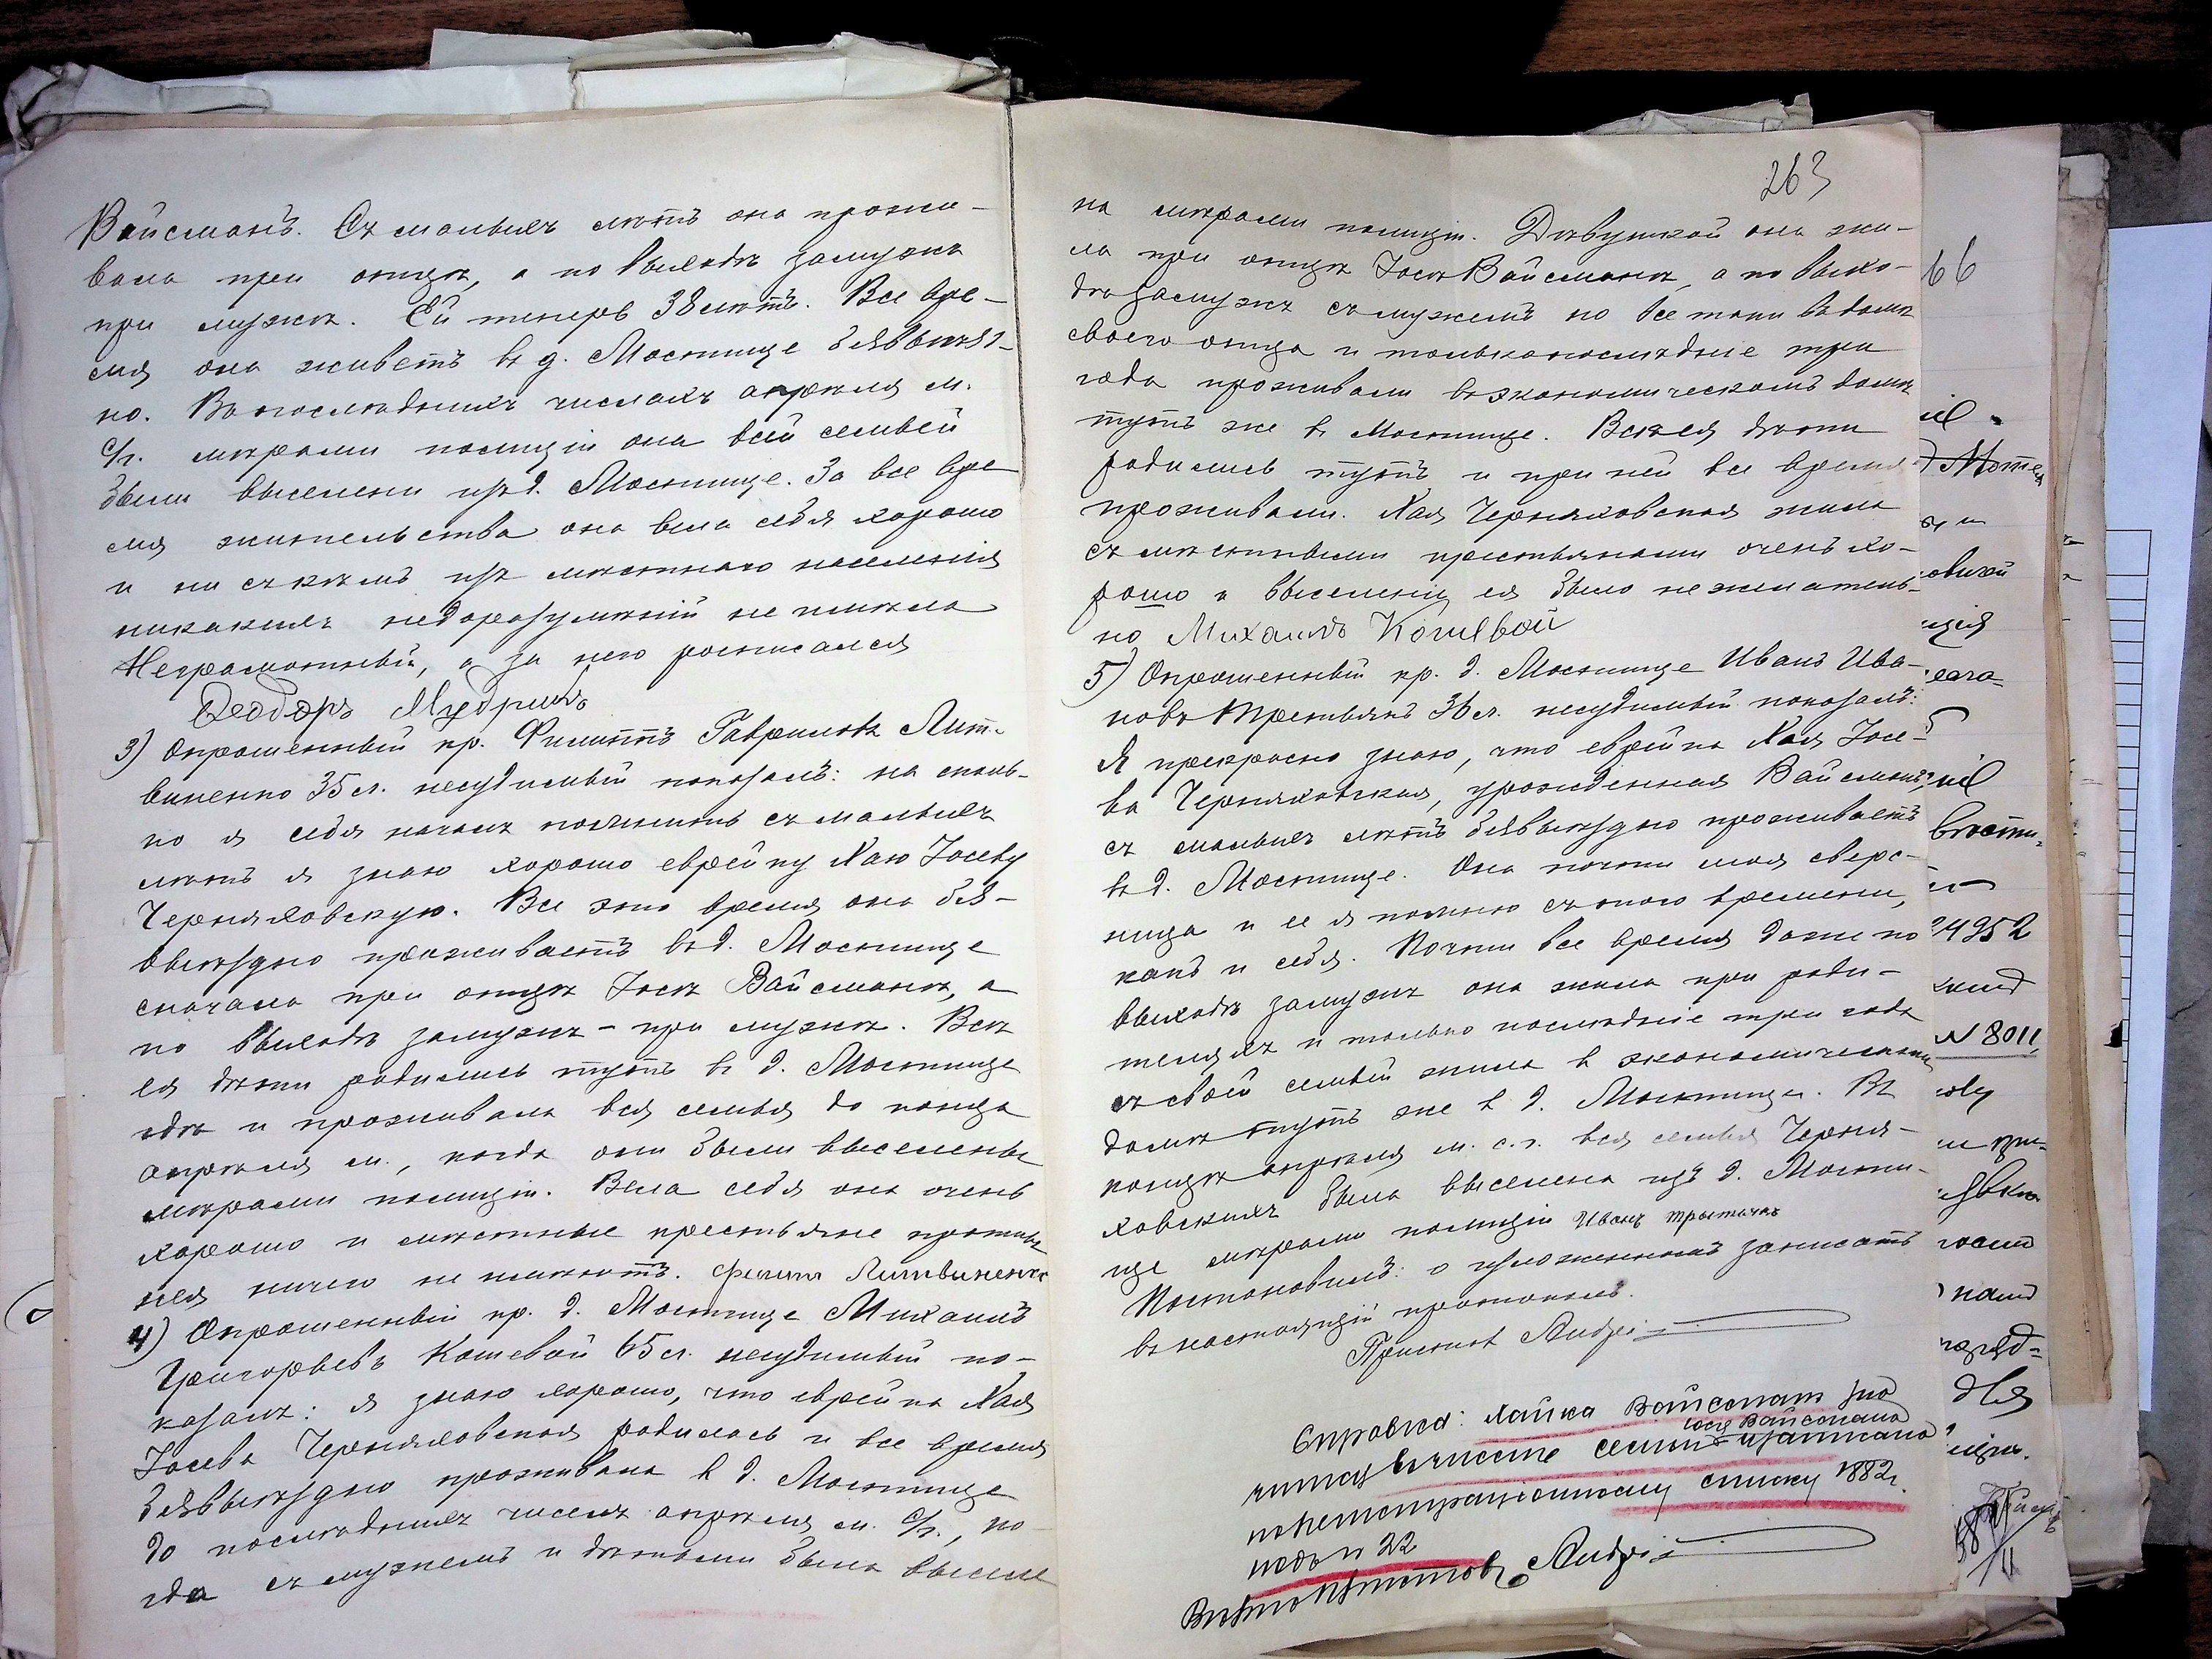 Вайсманъ. Съ малыхъ лѣтъ она прожи-
вала при отцѣ, а по выходѣ замужъ
при мужѣ. Ей теперь 38 лѣтъ. Все вре-
мя она живетъ въ д. Мостище безвыѣзд-
но. Въ послѣднихъ числахъ апрѣля м.
с/г. мѣрами полиціи она всей семьей
были выселены изъ д. Мостище. За все вре
мя жительства она вела себя хорошо
и ни съ кѣмъ изъ мѣстнаго населенія
никакихъ недоразумѣній не имѣла
Неграмотный, а за него росписался
Ѳеодоръ Мудрикъ
3) Опрошенный кр. Филиппъ Гавриловъ Лит-
виненко 35 л. несудимый показалъ: на сколь-
ко я себя началъ помнить съ малыхъ
лѣтъ я знаю хорошо еврейку Хаю Іосеву
Черняховскую. Все это время она без-
выѣздно проживаетъ въ д. Мостище
сначала при отцѣ Іосѣ Вайсманѣ, а
по выходѣ замужъ - при мужѣ. Всѣ
ея дѣти родились тутъ въ д. Мостище
гдѣ и проживала вся семья до конца
апрѣля м., когда они были выселены
мѣрами полиціи. Вела себя она очень
хорошо и мѣстные крестьяне противъ
нея ничего не имѣютъ. Филип Литвиненко
4) Опрошенный кр. д. Мостище Михаилъ
Григорьевъ Кошевой 65 л. несудимый по-
казалъ: я знаю хорошо, что еврейка Хая
Іосева Черняховская родилась и все время
безвыѣздно проживала въ д. Мостище
до послѣднихъ чиселъ апрѣля м. с/г., ко-
гда съ мужемъ и дѣтьми была высле
263
на мѣрами полиціи. Дѣвушкой она жи-
ла при отцѣ Іосѣ Вайсманѣ, а по выхо-
дѣ замужъ съ мужемъ но все таки въ домѣ
своего отца и только послѣдніе три
года проживали въ экономическомъ домѣ
тутъ же въ Мостище. Всѣ ея дѣти
родились тутъ и при ней все время
проживали. Хая Черняховская жила
съ мѣстными крестьянами очень хо-
рошо и выселеніе ея было не желатель-
но Михаилъ Кошевой
5) Опрошенный кр. д. Мостище Иванъ Ива-
новъ Третьякъ 36 л. несудимый показалъ:
Я прекрасно знаю, что еврейка Хая Іосе-
ва Черняховская, урожденная Вайсманъ,
съ малыхъ лѣтъ безвыѣздно проживаетъ
въ д. Мостище. Она почти моя сверс-
ница и ее я помню съ того времени,
какъ и себя. Почти все время даже по
выходѣ замужъ она жила при роди-
теляхъ и только послѣдніе три года
съ своей семьей жила въ экономическомъ
домѣ тутъ же въ д. Мостище. Въ
концѣ апрѣля м. с. г. вся семья Черня-
ховскихъ была выселена изъ д. Мости-
ще мѣрами полиціи Иванъ Третякъ
Постановилъ: о изложенномъ записать
въ настоящій протоколъ.
Приставъ
Справка: Хайка Вайсманъ зна
чится въ числѣ семьи Іося Вайсмана
по регистраціонному списку 1882 г.
подъ № 22
Вѣрно Приставъ
66
24952
№ 8011